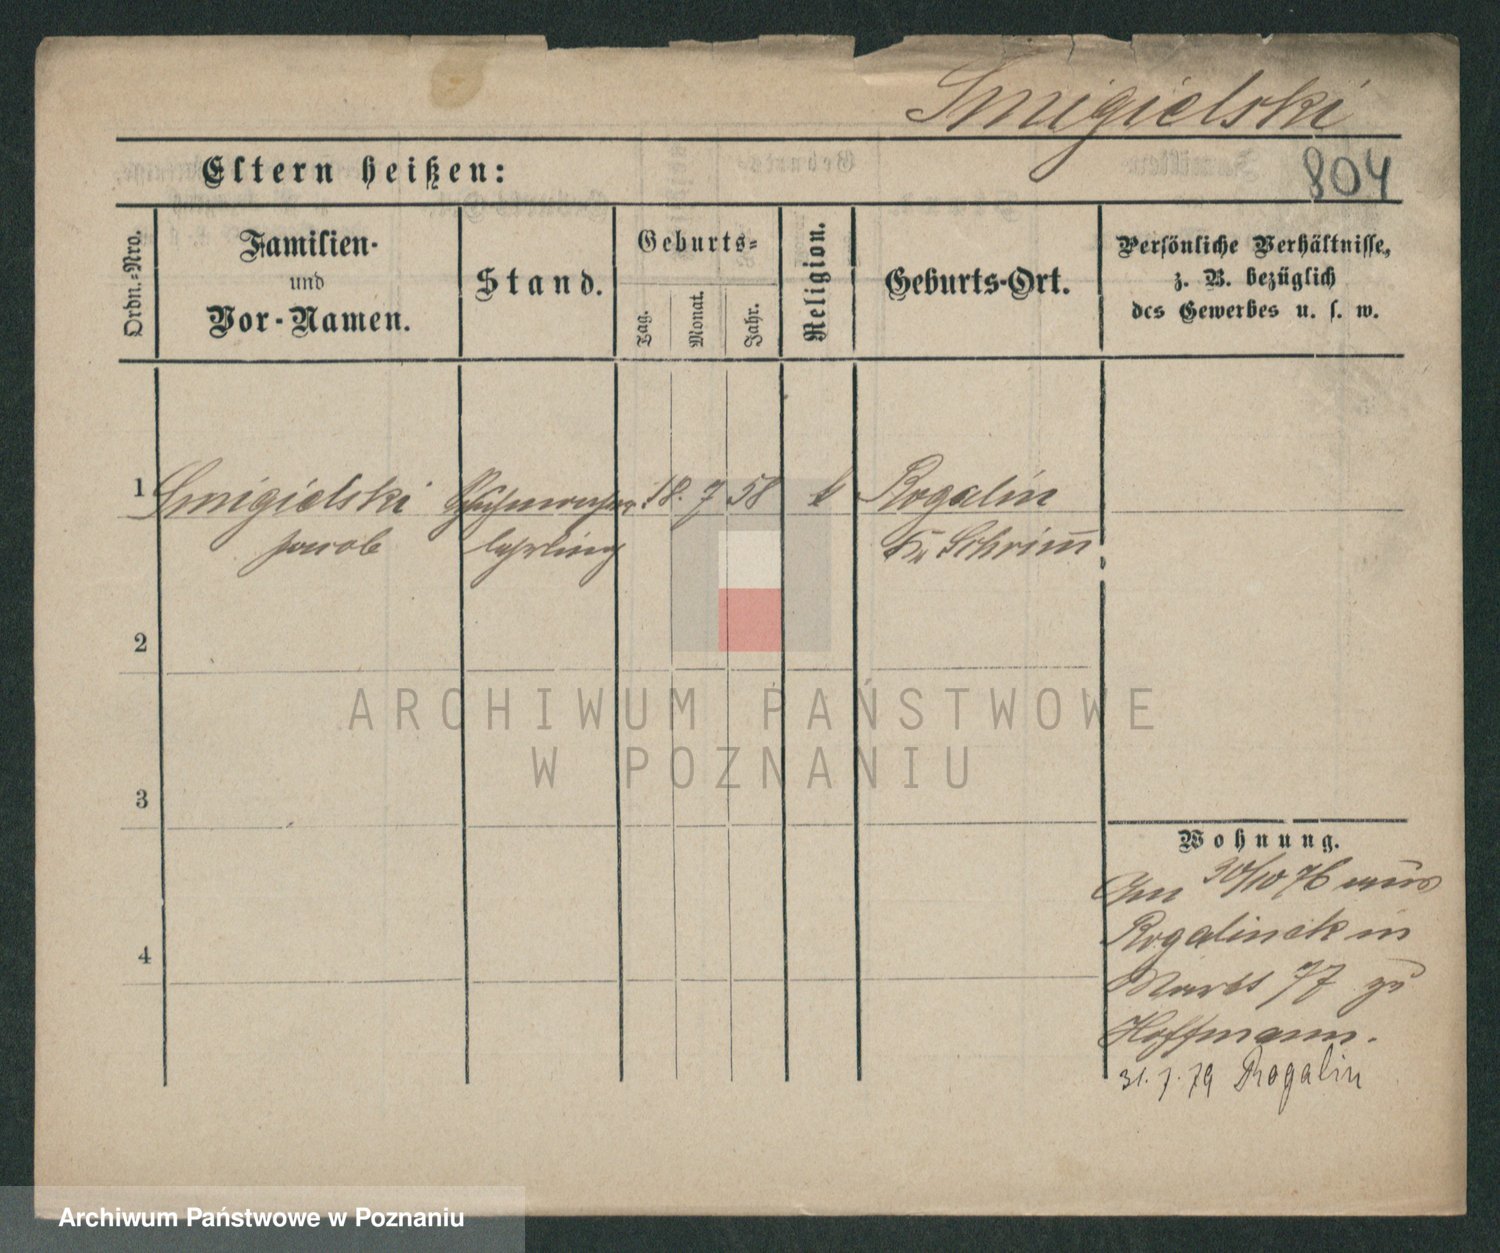 Smigielski
804
Eltern heißen:
Ordn.-Nro.
Familien-
und
Vor-Namen.
Stand.
Geburts-
Tag.
Monat.
Jahr.
Religion.
Geburts-Ort.
Persönliche Verhältnisse,
z. B. bezüglich
des Gewerbes u. s. w.
1
Smigielski
Jacob
Schuhmacher
lehrling
18. 7 58
k
Rogalin
Kr Schrimm
2
3
4
Wohnung.
Am 30/10 76 aus
Rogalinek in
Markt 77 zu
Hoffmann.
31. 7. 79 Rogalin
ARCHIWUM PAŃSTWOWE
W POZNANIU
Archiwum Państwowe w Poznaniu